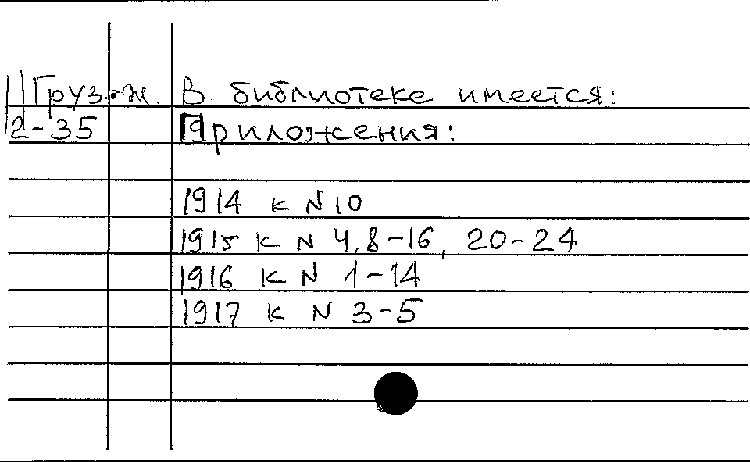 Груз.-ж. В библиотеке имеется:
2-35 Приложения:
1914 к N 10
1915 к N 4,8-16, 20-24
1916 к N 1-14
1917 к N 3-5